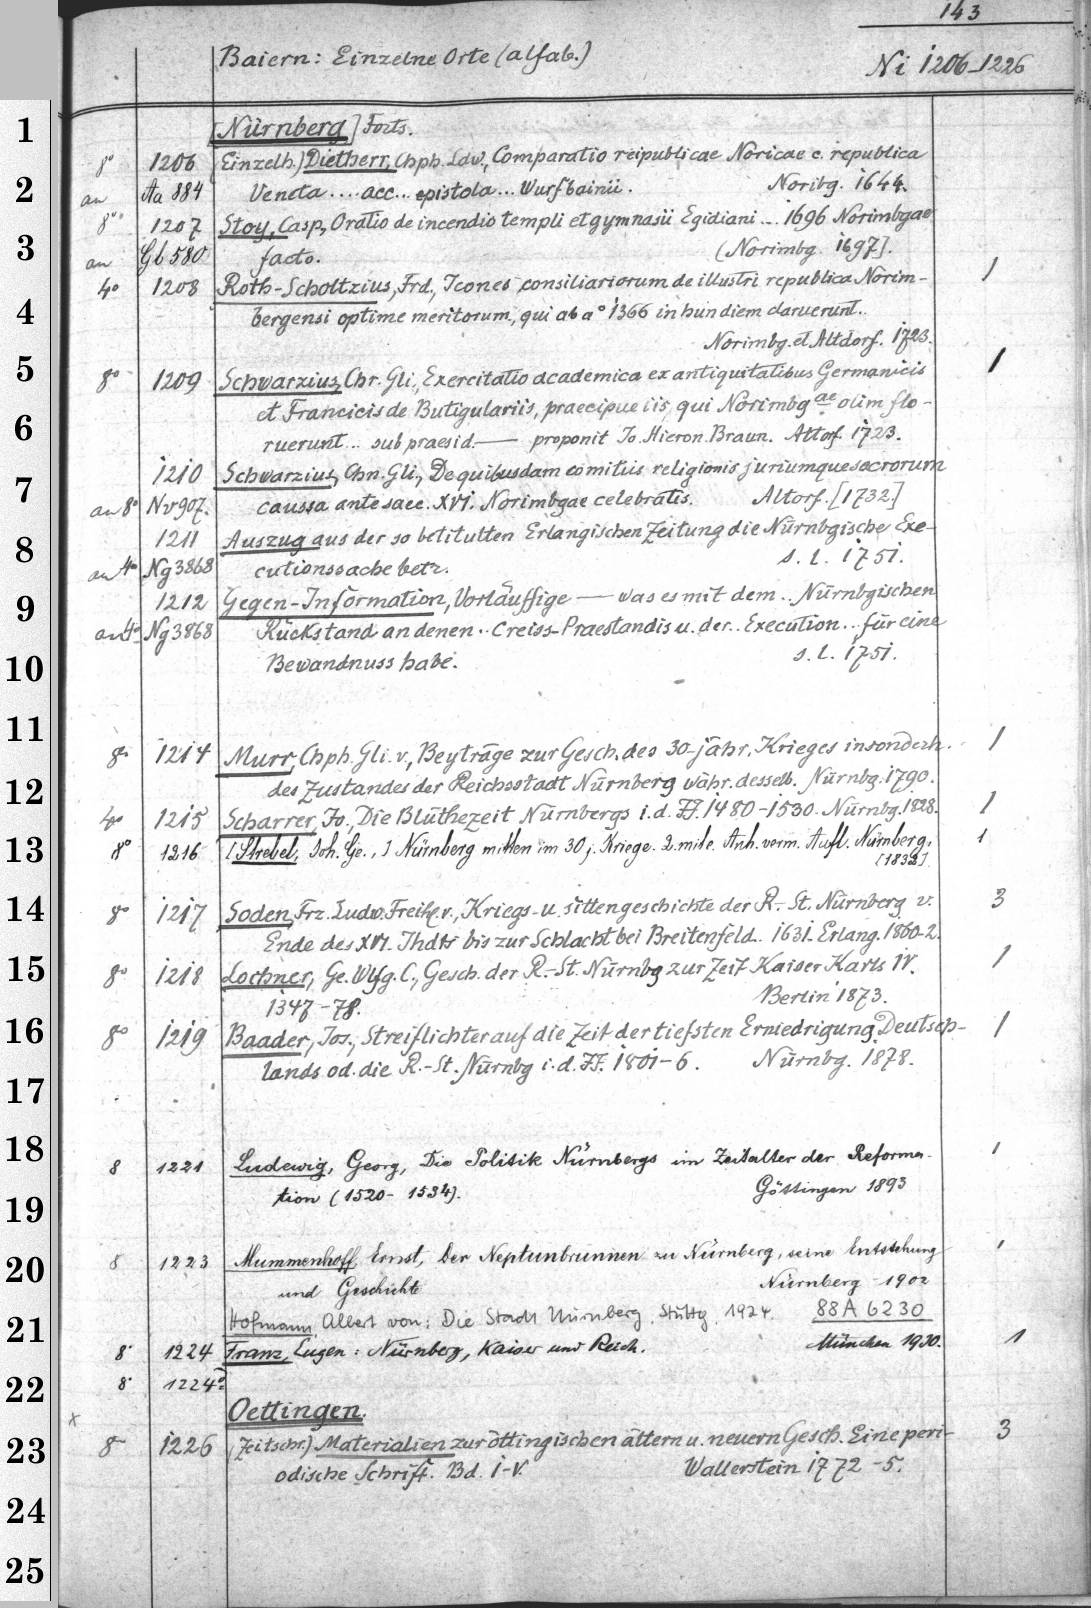 143
Baiern: Einzelne Orte (alfab.) Ni 1206-1226
[Nürnberg] Forts.
8° 1206 Einzelh.) Dietherr, Chph. Ldw., Comparatio reipublicae Noricae c. republica
an Aa 884 Veneta .... acc... epistola... Wurfbainii. Noribg. 1644.
8° 1207 Stoy, Casp., Oratio de incendio templi et gymnasii Egidiani ... 1696 Norimbgae
an Gb 580 facto. (Norimbg. 1697].
4° 1208 Roth-Scholtzius, Frd., Icones consiliariorum de illustri republica Norim- 1
bergensi optime meritorum, qui ab a° 1366 in hun diem claruerunt..
Norimbg. et Altdorf. 1723.
8° 1209 Schwarzius, Chr. Gli., Exercitatio academica ex antiquitatibus Germanicis 1
et Francicis de Butigulariis, praecipue iis, qui Norimbgae olim flo-
ruerunt... sub praesid. — proponit Jo. Hieron. Braun. Altorf. 1723.
1210 Schwarzius, Chn. Gli., De quibusdam comitiis religionis juriumque sacrorum
an 8° Nv 907. caussa ante saec. XVI. Norimbgae celebratis. Altorf. [1732.]
1211 Auszug aus der so betitulten Erlangischen Zeitung die Nürnbgische Exe-
an 4° Ng 3868 cutionssache betr. s. l. 1751.
1212 Gegen-Information, Vorläuffige — was es mit dem .. Nürnbgischen
an 4° Ng 3868 Rückstand an denen .. Creiss-Praestandis u. der .. Execution... für eine
Bewandnuss habe. s. l. 1751.
8° 1214 Murr, Chph. Gli. v., Beyträge zur Gesch. des 30-jähr. Krieges insonderh. 1
des Zustandes der Reichsstadt Nürnberg währ. desselb. Nürnbg. 1790.
4° 1215 Scharrer, Jo., Die Blüthezeit Nürnbergs i. d. JJ. 1480-1530. Nürnbg. 1828. 1
8° 1216 [Strebel, Joh. Ge.,] Nürnberg mitten im 30j. Kriege. 2. mit e. Anh. verm. Aufl. Nürnberg. 1
[1832]
8° 1217 Soden, Frz. Ludw. Freih. v., Kriegs- u. Sittengeschichte der R.-St. Nürnberg v. 3
Ende des XVI. Jhdts bis zur Schlacht bei Breitenfeld.. 1631. Erlang. 1860-2.
8° 1218 Lochner, Ge. Wfg. C., Gesch. der R.-St. Nürnbg zur Zeit Kaiser Karls IV. 1
1347-78. Berlin 1873.
8° 1219 Baader, Jos., Streiflichter auf die Zeit der tiefsten Erniedrigung Deutsch- 1
lands od. die R.-St. Nürnbg i. d. JJ. 1801-6. Nürnbg. 1878.
8 1221 Ludewig, Georg, Die Politik Nürnbergs im Zeitalter der Reforma- 1
tion (1520-1534). Göttingen 1893
8 1223 Mummenhoff, Ernst, Der Neptunbrunnen zu Nürnberg, seine Entstehung 1
und Geschichte Nürnberg 1902
Hofmann, Albert von: Die Stadt Nürnberg. Stuttg. 1924. 88 A 6230
8° 1224 Franz, Eugen: Nürnberg, Kaiser und Reich. München 1930. 1
8° 1224a:
Oettingen.
8° 1226 (Zeitschr.) Materialien zur öttingischen ältern u. neuern Gesch. Eine peri- 3
odische Schrift. Bd. I-V. Wallerstein 1772-5.
1
2
3
4
5
6
7
8
9
10
11
12
13
14
15
16
17
18
19
20
21
22
23
24
25